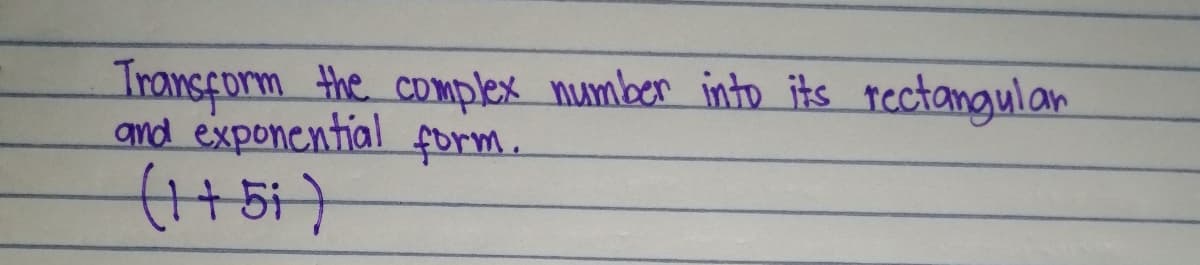 Transform the complex number into its rectangular
and exponential form.
(1 + 5i)